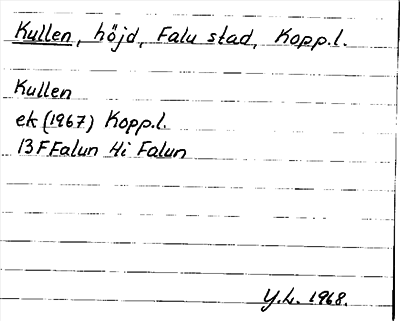 Kullen, höjd, Falu stad, Kopp.l.
Kullen
ek (1967) Kopp.l.
13 F Falun Hi Falun
Y.L. 1968.